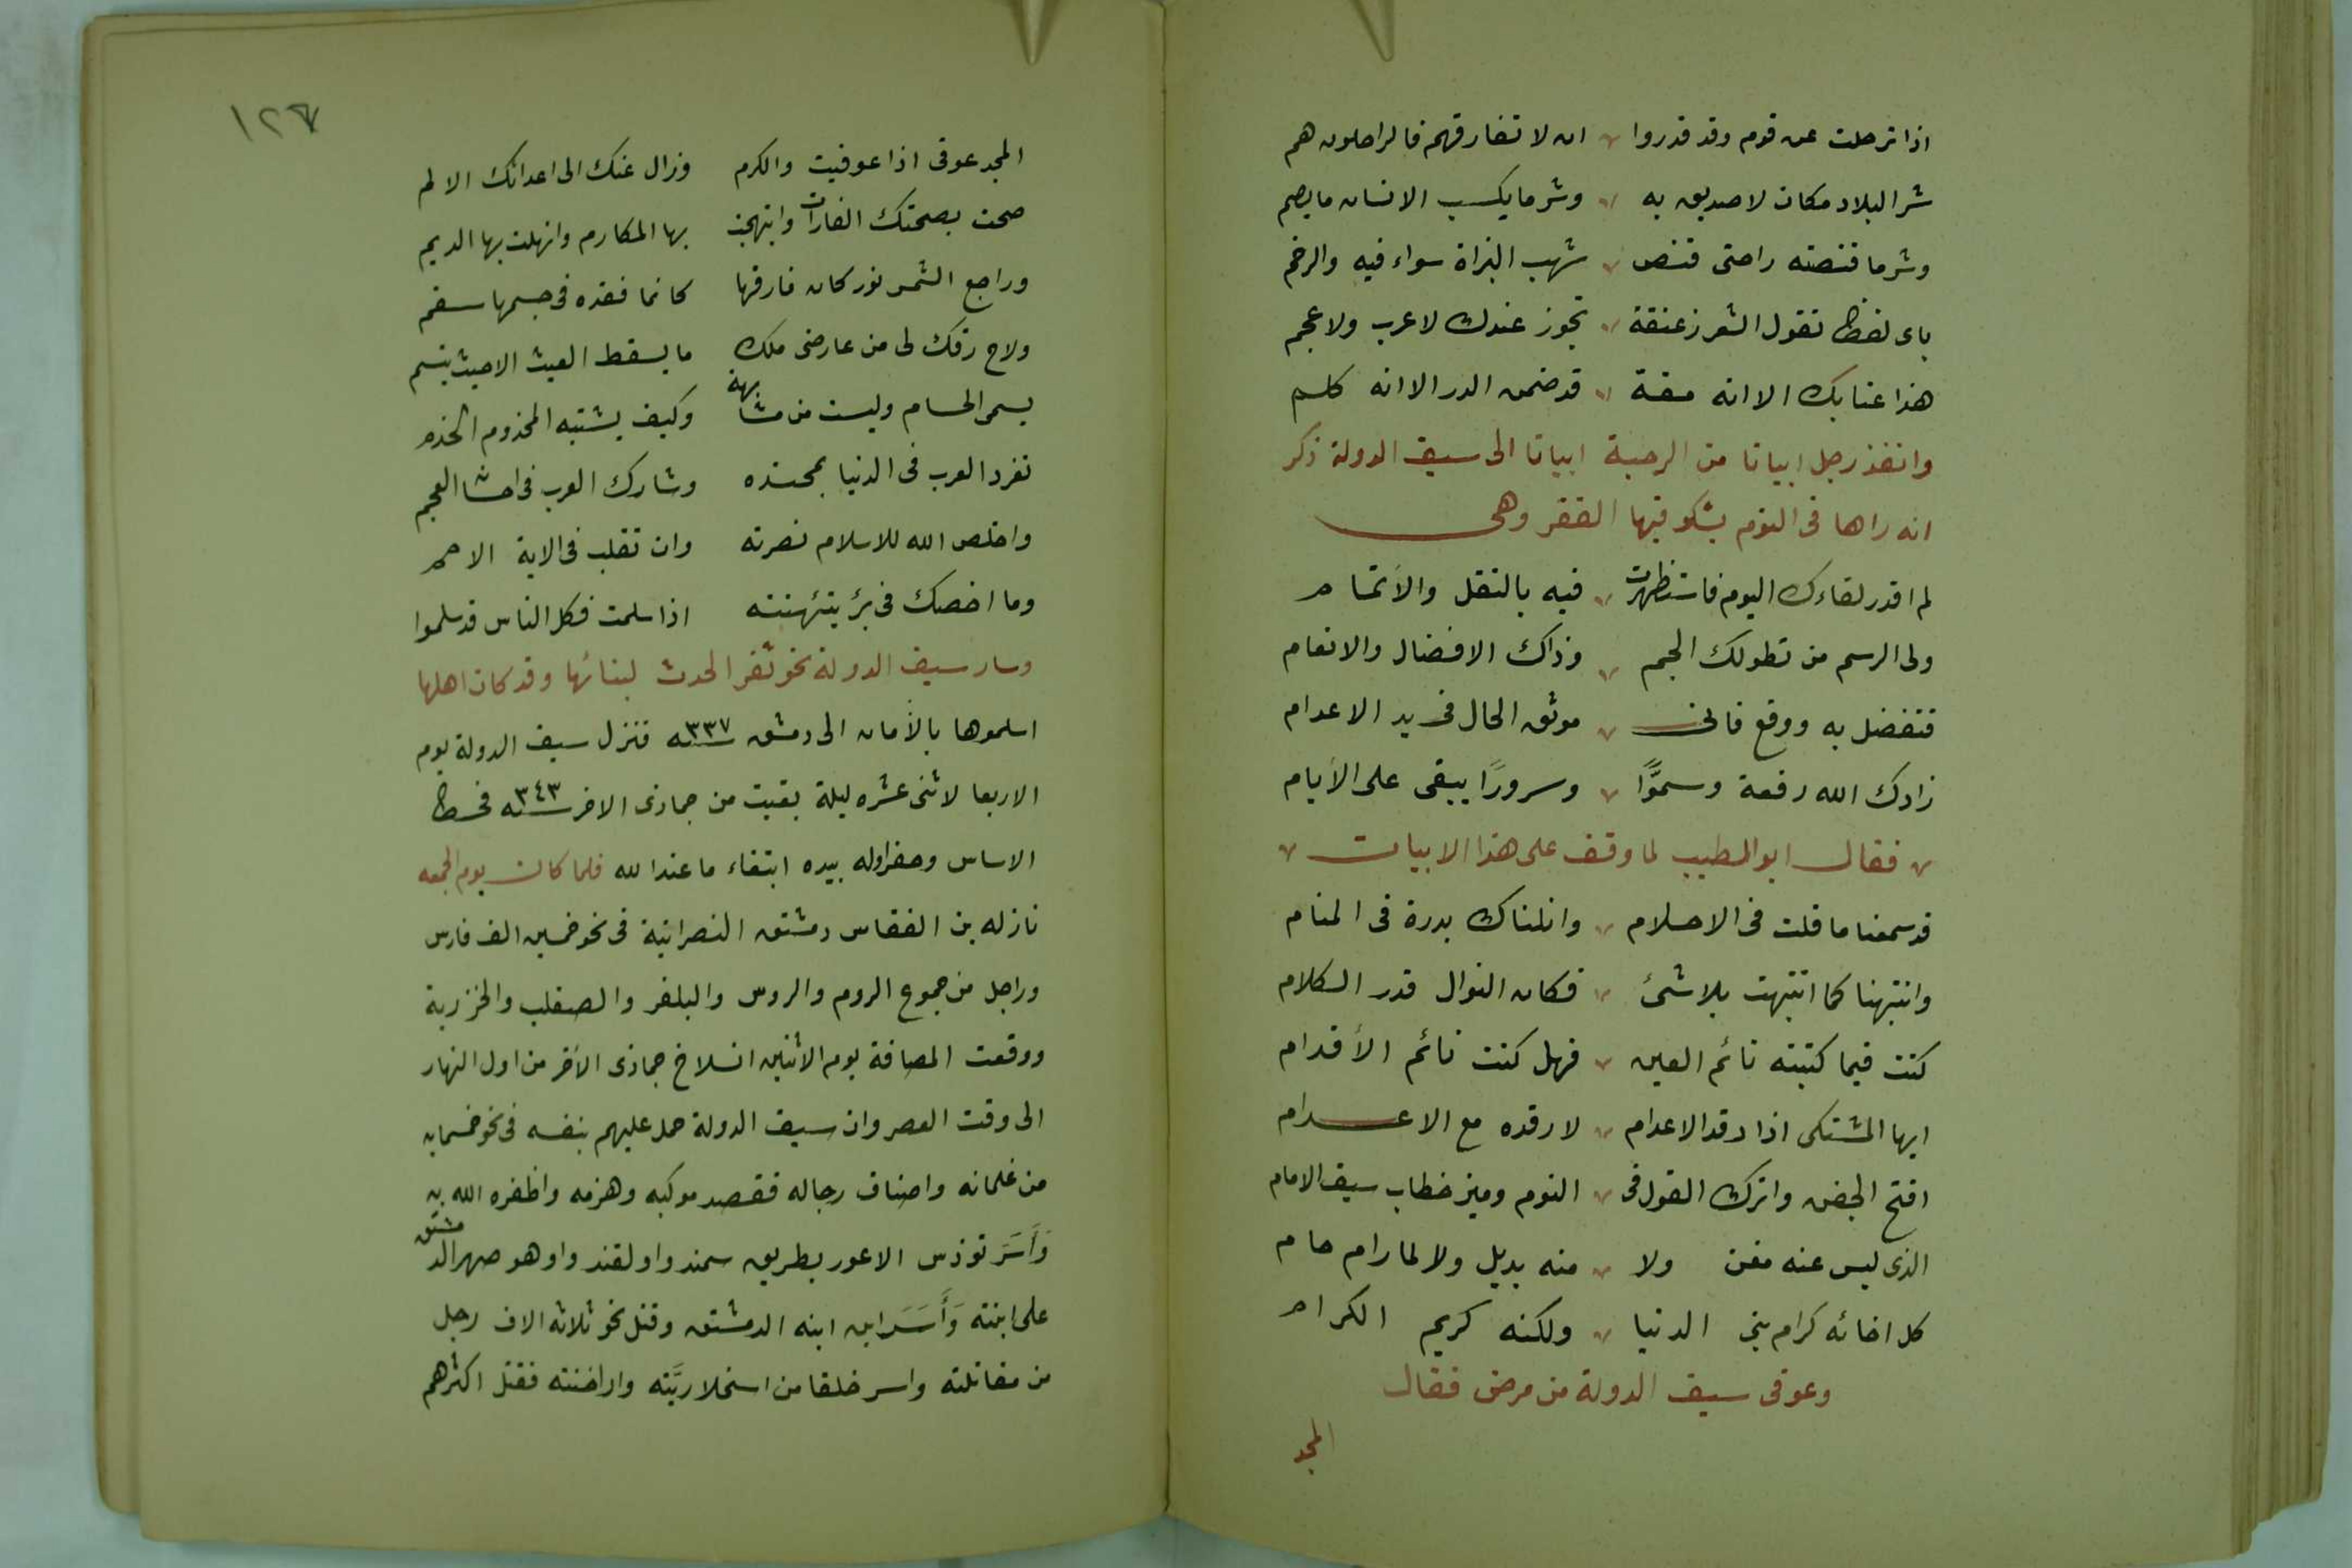 اذا ترحلت عن قوم وقد قدروا ان لا تفارقهم فالراحلون هم
شر البلاد مكان لا صديق به وشر ما يكسب الانسان ما يصم
وشر ما قنصته راحتى قنص شهب البزاة سواء فيه والرخم
باى لفظ تقول الشعر زعنفة تجوز عندك لا عرب ولا عجم
هذا عتابك الا انه مقة قد ضمن الدر الا انه كلم
وانفذ رجل ابياتا من الرحبة ابياتا الى سيف الدولة ذكر
انه راها فى النوم يشكو فيها الفقر وهى
لم اقدر لقاءك اليوم فاستظهرت فيه بالنقل والأتمام
ولى الرسم من تطولك الجم وذاك الافضال والانعام
فتفضل به ووقع فانى موثق الحال فى يد الاعدام
زادك الله رفعة وسموًّا وسرورًا يبقى على الأيام
فقال ابو الطيب لما وقف على هذا الابيات
قد سمعنا ما قلت فى الاحلام وانلناك بدرة فى المنام
وانتبهنا كما انتبهت بلا شئ فكان النوال قدر الكلام
كنت فيما كتبته نائم العين فهل كنت نائم الأقدام
ايها المشتكى اذا رقد الاعدام لا رقده مع الاعدام
افتح الجفن واترك القول فى النوم وميز خطاب سيف الامام
الذى ليس عنه مغن ولا منه بديل ولا لما رام حام
كل اخائه كرام بنى الدنيا ولكنه كريم الكرام
وعوفى سيف الدولة من مرض فقال
المجد
١٢٧
المجد عوفى اذا عوفيت والكرم وزال عنك الى اعدائك الالم
صحت بصحتك الغارات وابتهجت بها المكارم وانهلت بها الديم
وراجع الشمس نور كان فارقها كانما فقده فى جسمها سقم
ولاح برقك لى من عارضى ملك ما يسقط الغيث الا حيث يبتسم
يسمى الحسام وليست من مشابهة وكيف يشتبه المخدوم الخدم
تفرد العرب فى الدنيا بمحتده وشارك العرب فى احسا العجم
واخلص الله للاسلام نصرته وان تقلب فى الاية الامم
وما اخصك فى برئ بتهنئته اذا سلمت فكل الناس قد سلموا
وسار سيف الدولة نحو ثغر الحدث لبنائها وقد كان اهلها
اسلموها بالأمان الى دمشق سنه ٣٣٧ فنزل سيف الدولة يوم
الاربعا لاثنى عشره ليلة بقيت من جمادى الاخر سنه ٣٤٣ فخط
الاساس وحفر اوله بيده ابتغاء ما عند الله فلما كان يوم الجمعه
نازله بن الفقاس دمشق النصرانية فى نحو خمسين الف فارس
وراجل من جموع الروم والروس والبلغر والصقلب والخزرية
ووقعت المصافة يوم الاثنين انسلاخ جمادى الأخر من اول النهار
الى وقت العصر وان سيف الدولة حمل عليهم بنفسه فى نحو خمسمايه
من غلمانه واصناف رجاله فقصد موكبه وهزمه واظفره الله به
وَأَسَرَ توذس الاعور بطريق سمندو اولقندوا وهو صهر الدمشق
على ابنته وَأَسَرَ ابن ابنه الدمشق وقتل نحو ثلاثه الاف رجل
من مقاتلته واسر خلقا من اسخلاريَّته واراخنته فقتل اكثرهم